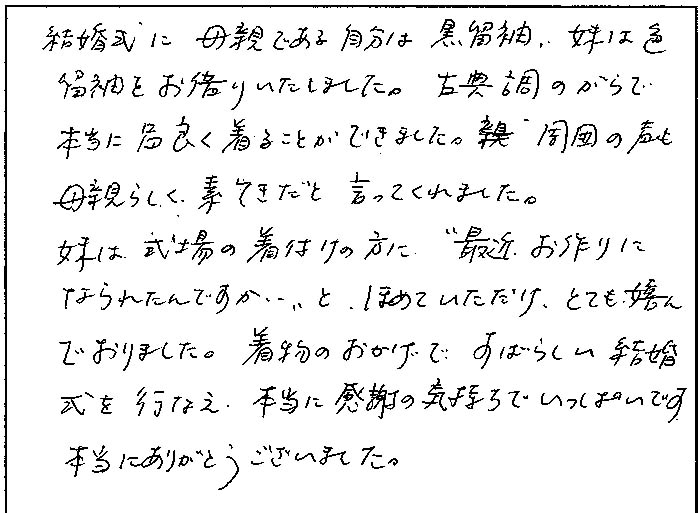 結婚式に 母親である自分は 黒留袖、妹は色
留袖をお借りいたしました。 古典調のがらで
本当に品良く着ることができました。 周囲の声も
母親らしく、素てきだと 言ってくれました。
妹は 式場の着付けの方に “最近 お作りに
なられたんですか…„と、ほめていただけ、とても嬉ん
でおりました。 着物のおかげで すばらしい結婚
式を行なえ、本当に感謝の気持ちでいっぱいです
本当にありがとうございました。